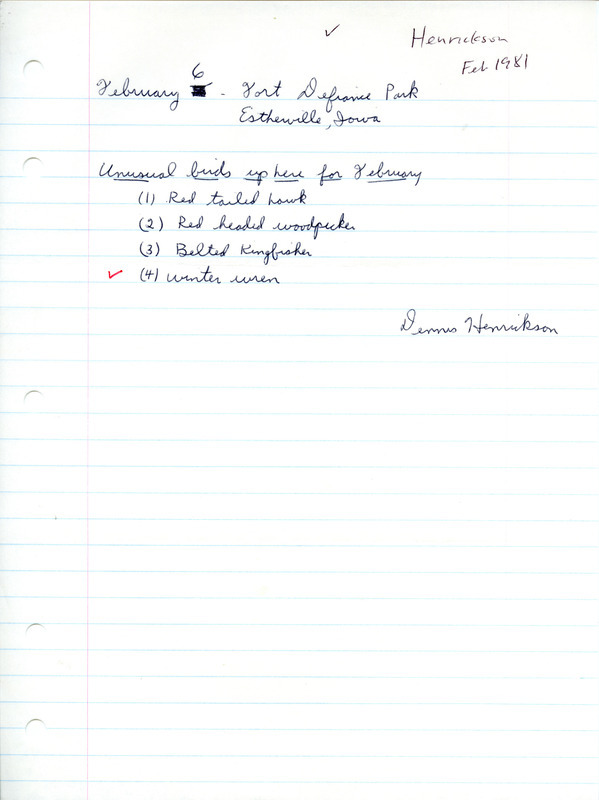 ✓
Henrickson
Feb 1981
February 6 - Fort Defiance Park
Estherville, Iowa
Unusual birds up here for February
(1) Red tailed hawk
(2) Red headed woodpecker
(3) Belted Kingfisher
✓ (4) winter wren
Dennis Henrickson